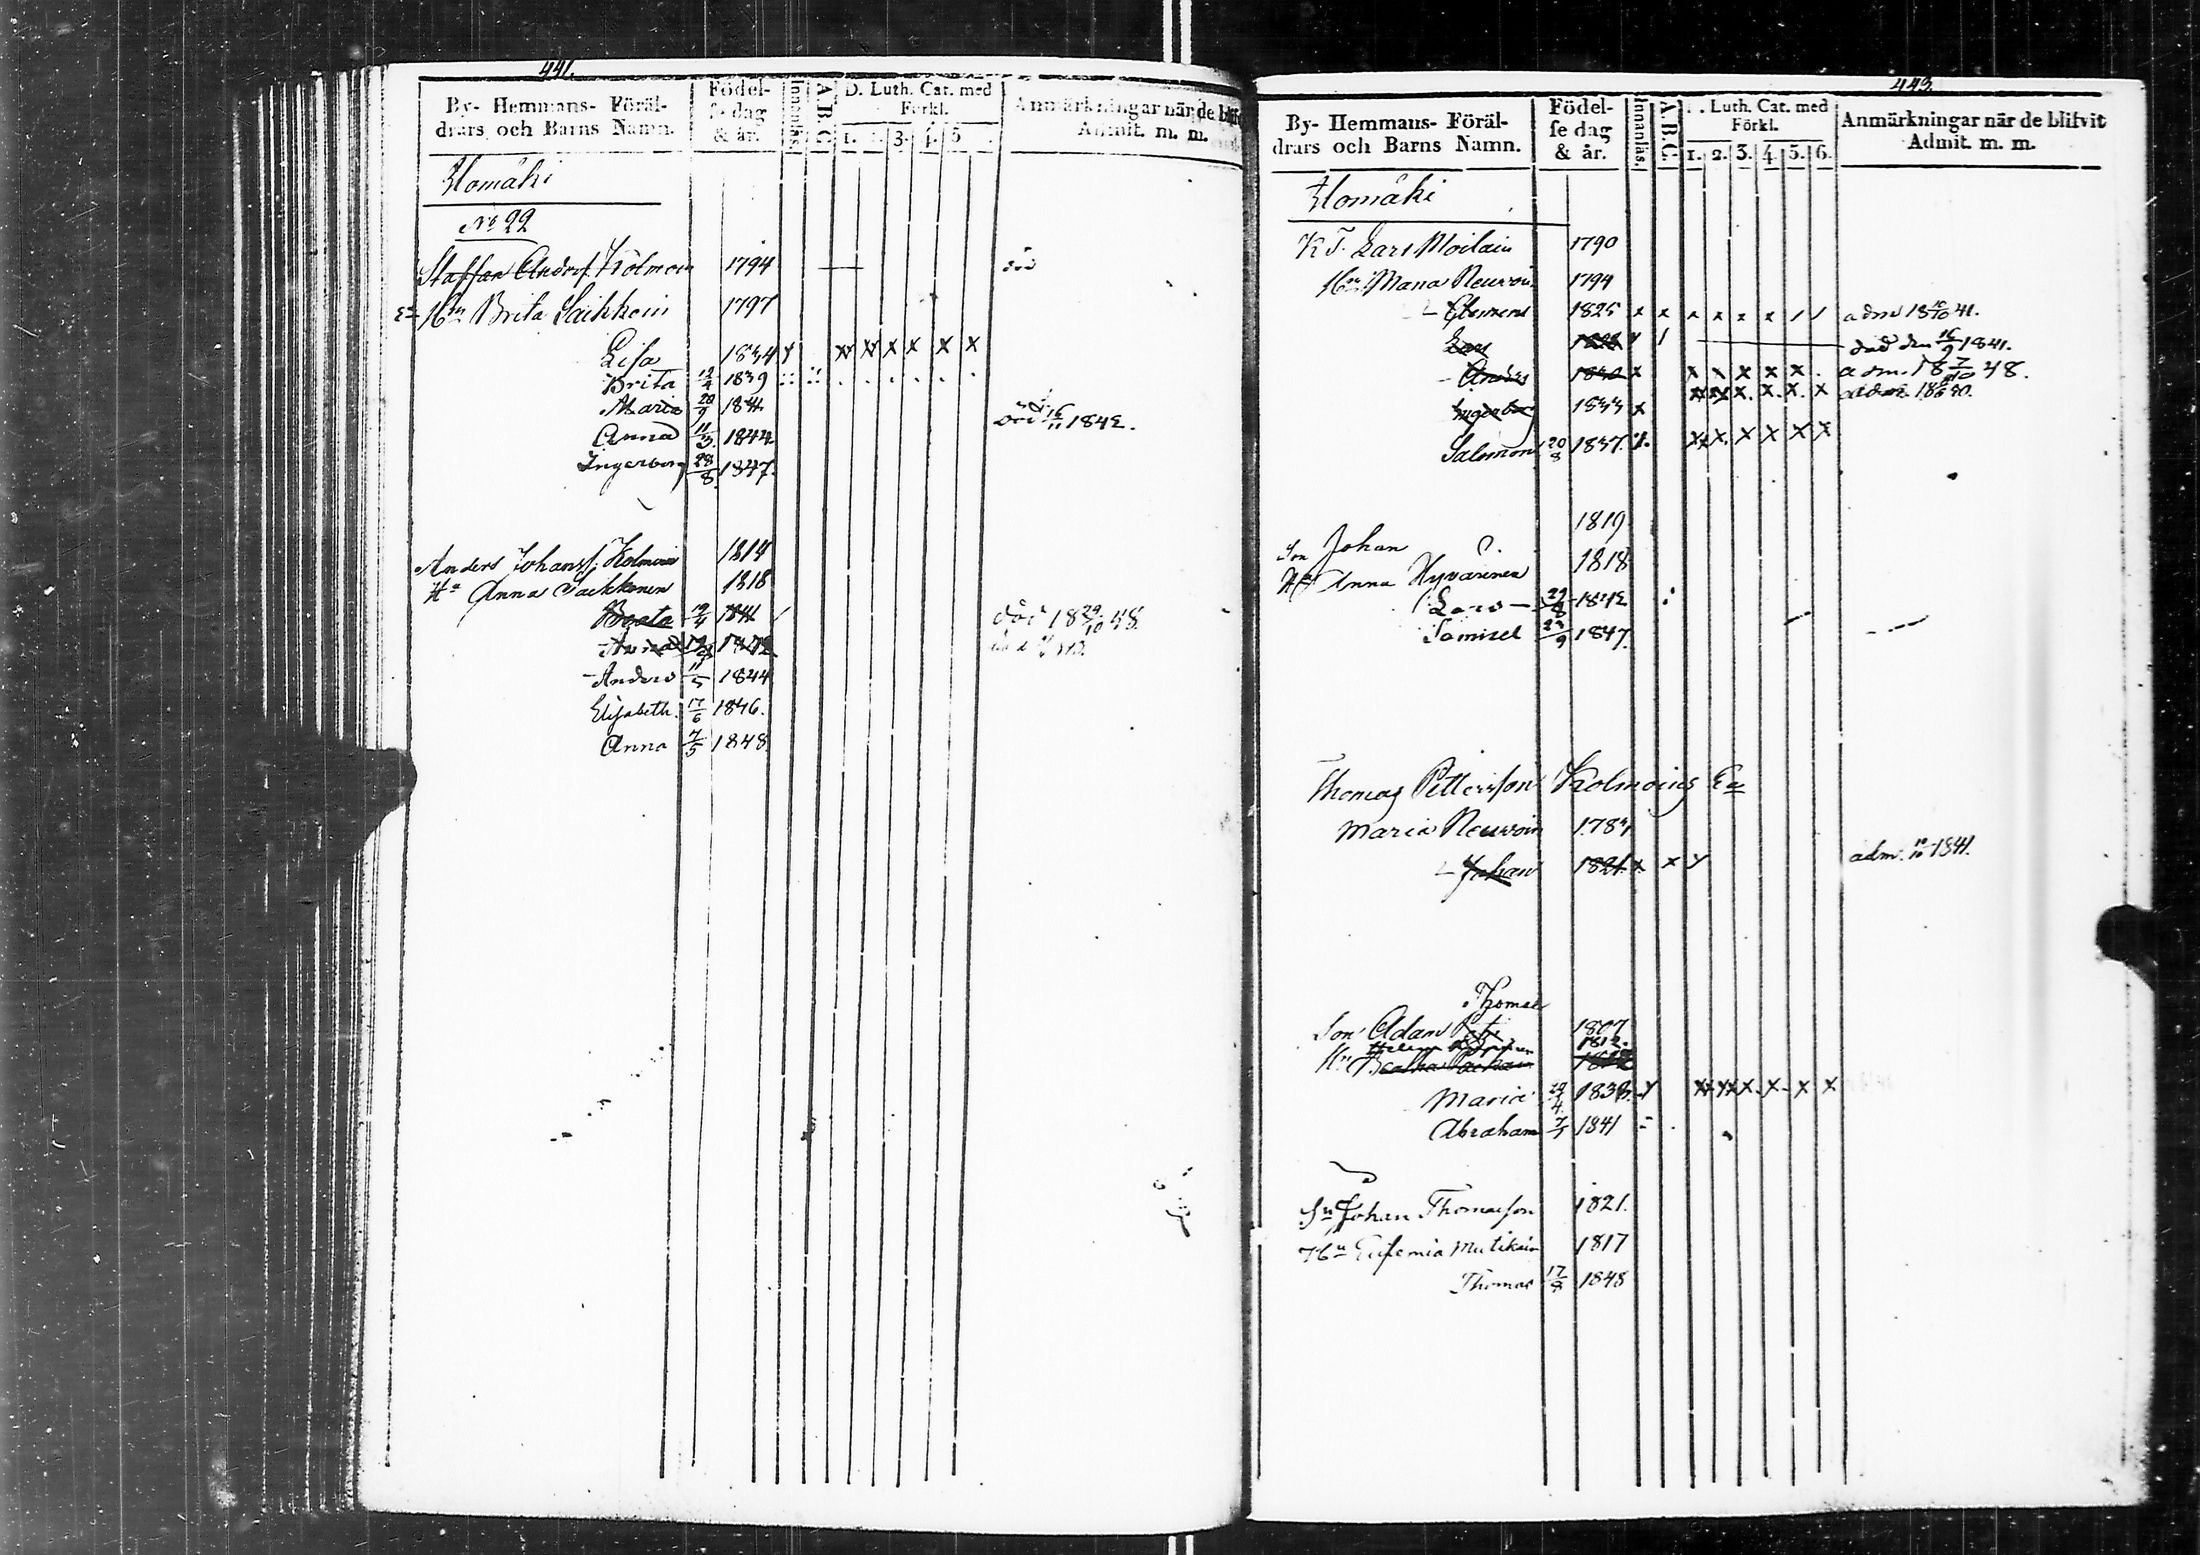 441.
By- Hemmans- Föräl-
drars och Barns Namn.
Födel-
se dag
& år.
Innanläs.
A.B.C.
D. Luth. Cat. med
Förkl.
1. 3. 4. 5
Anmärkningar när de blifv
Admit. m. m.
Homäki
No 22
Staffan Andersf. Kolmoin 1794 död
En Hu Brita Saikkoin 1797
Lisa 1834 x x x x x x
Brita 12/4 1839
Maria 20/9 1841 död 16/11 1842.
Anna 11/3 1844
Ingerborg 28/8 1847.
Anders Johansf. Kolmoin 1814
Hu Anna Saikkonen 1818
Beata 1841 död 18 29/10 48.
Anna 1842
Anders 11/5 1844
Elisabeth. 17/6 1846.
Anna 7/5 1848
443.
By- Hemmans- Föräl-
drars och Barns Namn.
Födel-
se dag
& år.
Innanläs.
A.B.C.
. . Luth. Cat. med
Förkl.
1. 2. 3. 4. 5. 6.
Anmärkningar när de blifvit
Admit. m. m.
Homäki
K T. Lars Moilain 1790
Hu Maria Neuvoin 1794
Clemens 1825 x x x x x x / / adm 18 10/10 41.
Lars 1828 död den 16/9 1841.
Anders 1830 x x x x x x adm. 18 7/10 48.
Ingeborg 1833 x x x x x x x
Salomon 20/8 1837. x x x x x x
1819
Son Johan
Hu Anna Hyvärinen 1818
Lars 29/8 1842
Samuel 29/9 1847.
Thomas Pettersson Kolmoins En
Maria Neuvoin 178
Johan 1821. x x x adm. 10/10 1841.
Thomas
Son Adam 1807
1812.
Hu
Maria 29/4 1838. x x x x x x
Abraham 1841
Sn Johan Thomasson 1821.
Hu Eufemia Mutikain 1817
Thomas 1848